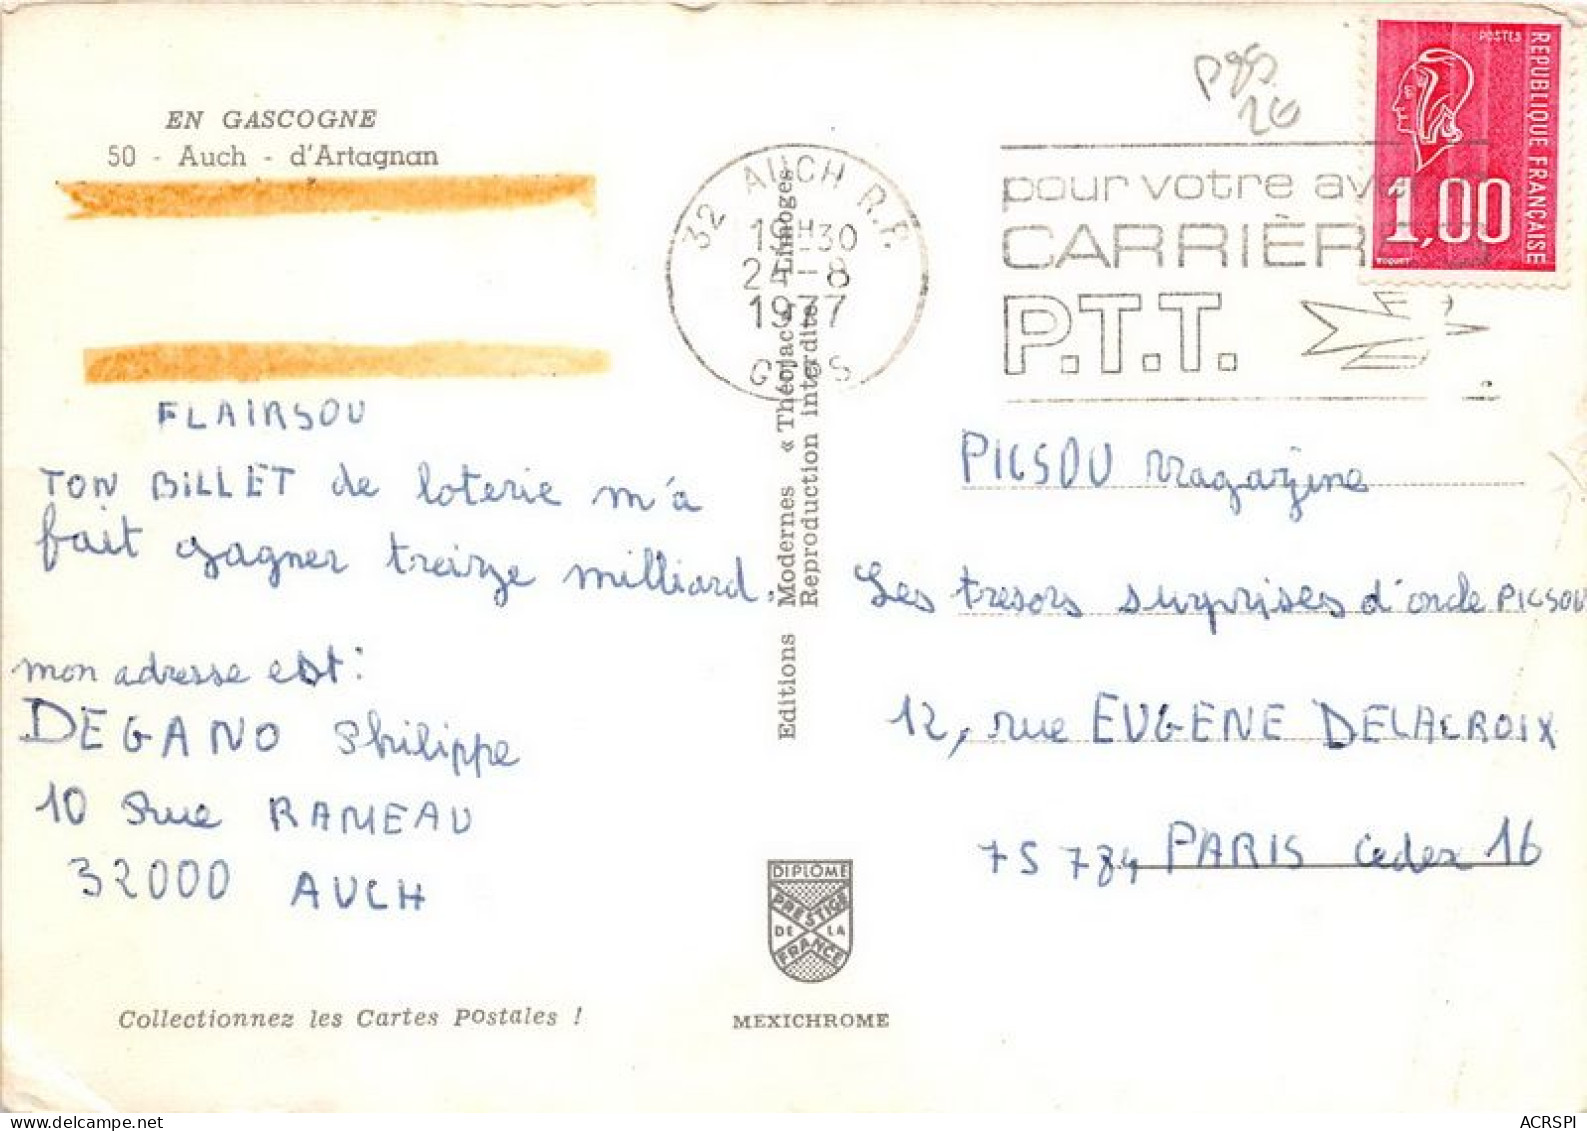 EN GASCOGNE
50 - Auch - d'Artagnan
FLAIRSOU
TON BILLET de loterie m'a
fait gagner treize milliard.
mon adresse est :
DEGANO Philippe
10 Rue RAMEAU
32000 AUCH
Collectionnez les Cartes Postales !
32 AUCH R.P.
19H30
24-8
1977
GERS
Editions Modernes « Théojac » Limoges
Reproduction interdite
DIPLOME
PRESTIGE
DE LA
FRANCE
MEXICHROME
pour votre av
CARRIÈR
P.T.T.
POSTES
REPUBLIQUE FRANÇAISE
1,00
PICSOU Magazine
Les tresors surprises d'oncle PICSOU
12, rue EUGENE DELACROIX
75 784 PARIS Cedex 16
ACRSPI